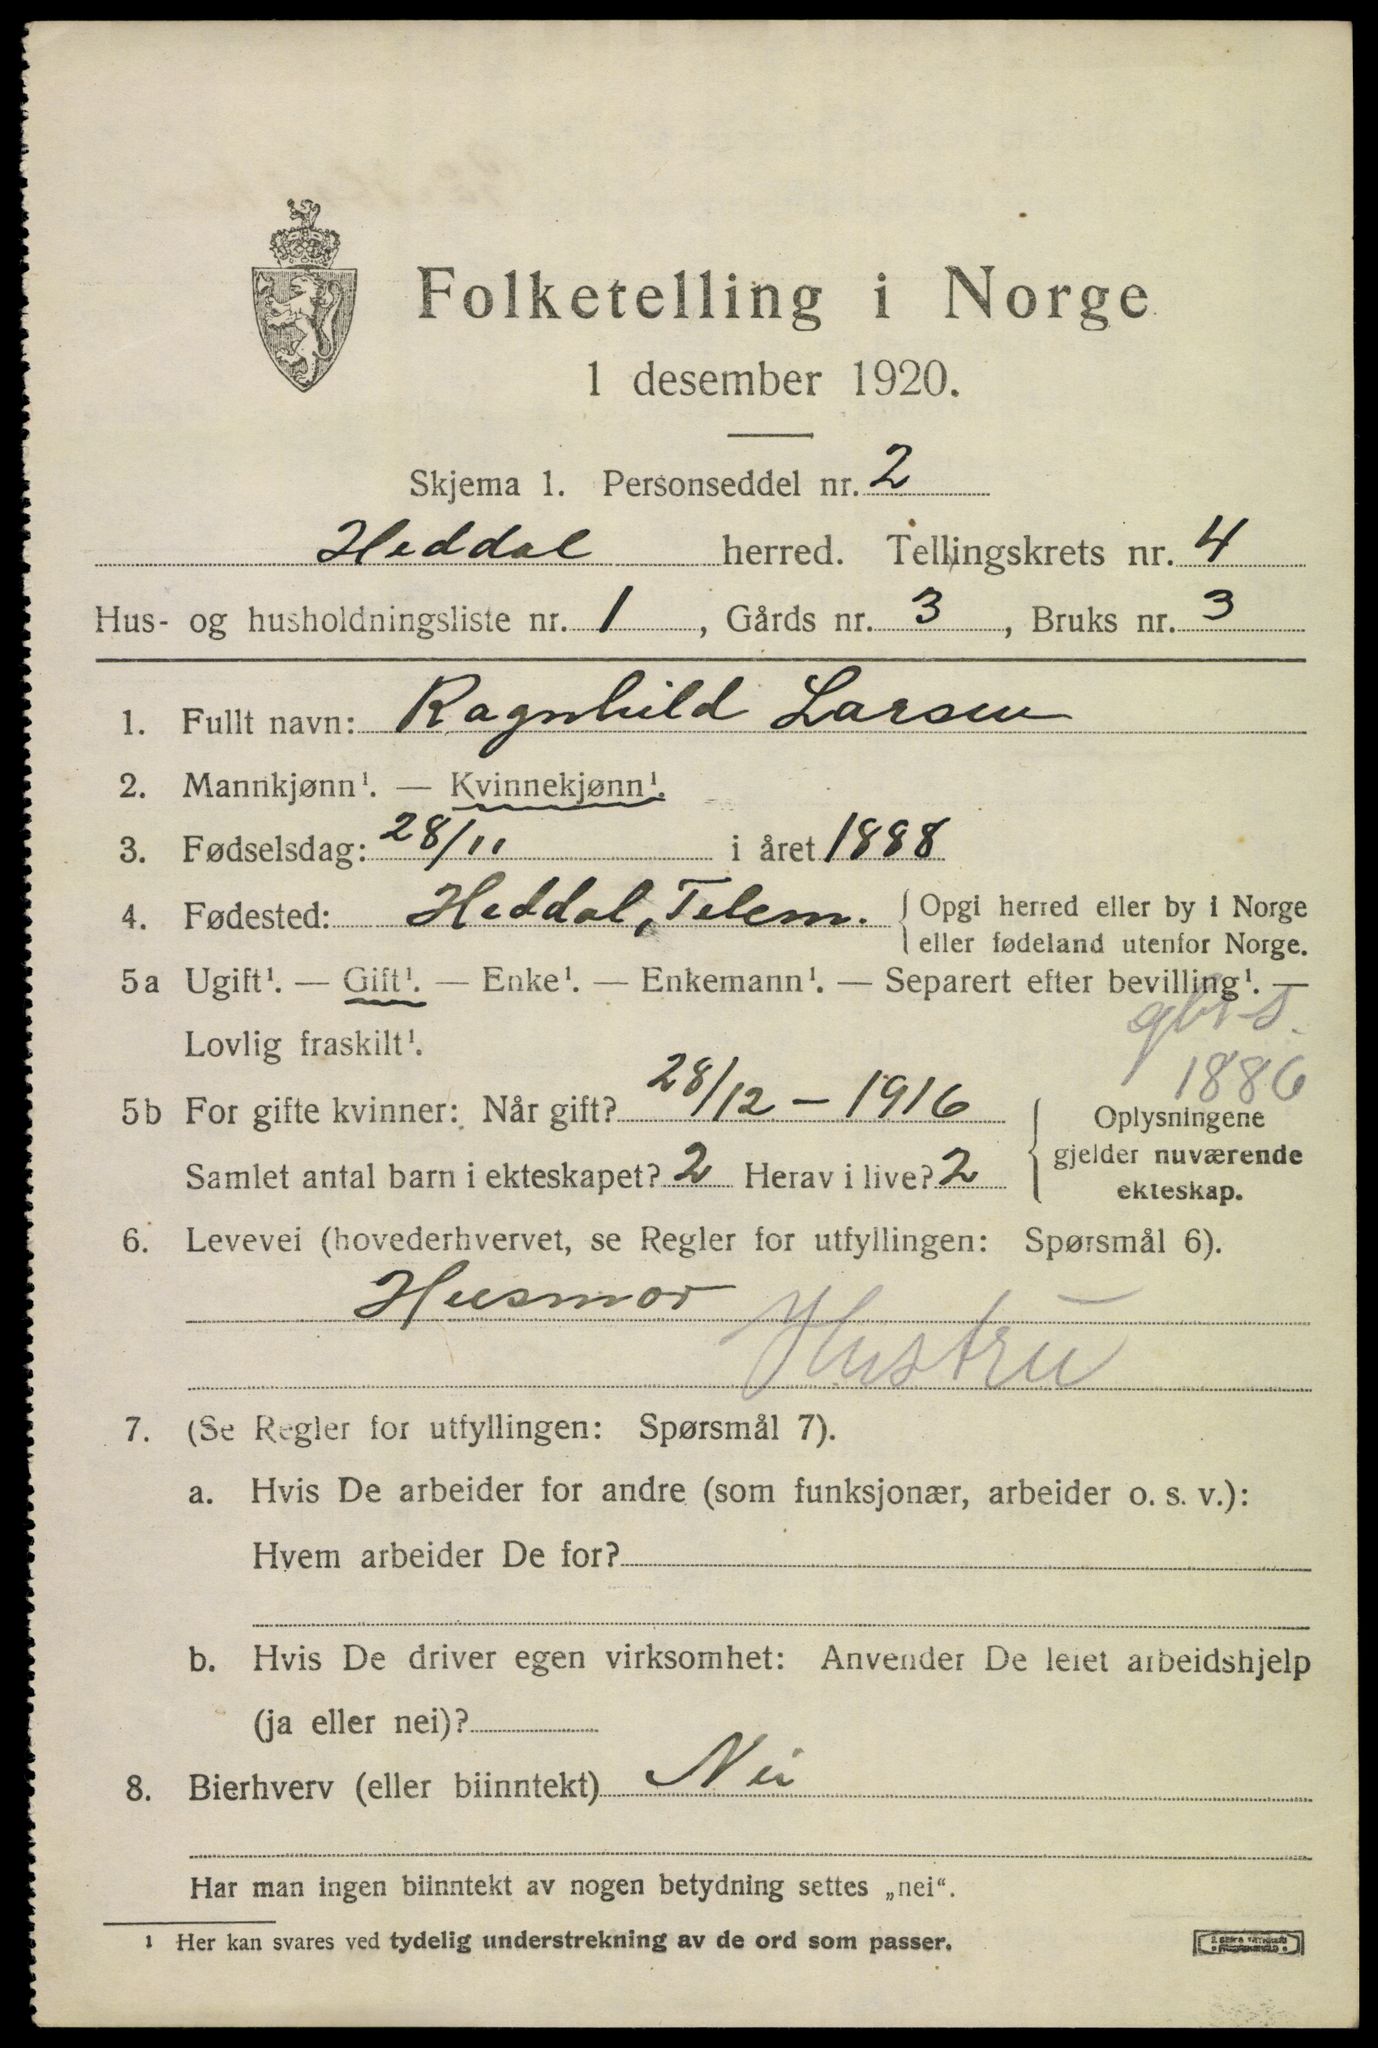 Folketelling i Norge
1 desember 1920.
Skjema 1. Personseddel nr. 2
Heddal herred. Tellingskrets nr. 4
Hus- og husholdningsliste nr. 1, Gårds nr. 3, Bruks nr. 3
1. Fullt navn: Ragnhild Larsen
2. Mannkjønn¹. — Kvinnekjønn¹.
3. Fødselsdag: 28/11 i året 1888
4. Fødested: Heddal, Telem. { Opgi herred eller by i Norge
eller fødeland utenfor Norge.
5a Ugift¹. — Gift¹. — Enke¹. — Enkemann¹. — Separert efter bevilling¹. —
Lovlig fraskilt¹.
1886
5b For gifte kvinner: Når gift? 28/12 – 1916
Samlet antal barn i ekteskapet? 2 Herav i live? 2
Oplysningene
gjelder nuværende
ekteskap.
6. Levevei (hovederhvervet, se Regler for utfyllingen: Spørsmål 6).
Husmor
Hustru
7. (Se Regler for utfyllingen: Spørsmål 7).
a. Hvis De arbeider for andre (som funksjonær, arbeider o. s. v.):
Hvem arbeider De for?
b. Hvis De driver egen virksomhet: Anvender De leiet arbeidshjelp
(ja eller nei)?
8. Bierhverv (eller biinntekt) Nei
Har man ingen biinntekt av nogen betydning settes „nei“.
1 Her kan svares ved tydelig understrekning av de ord som passer.